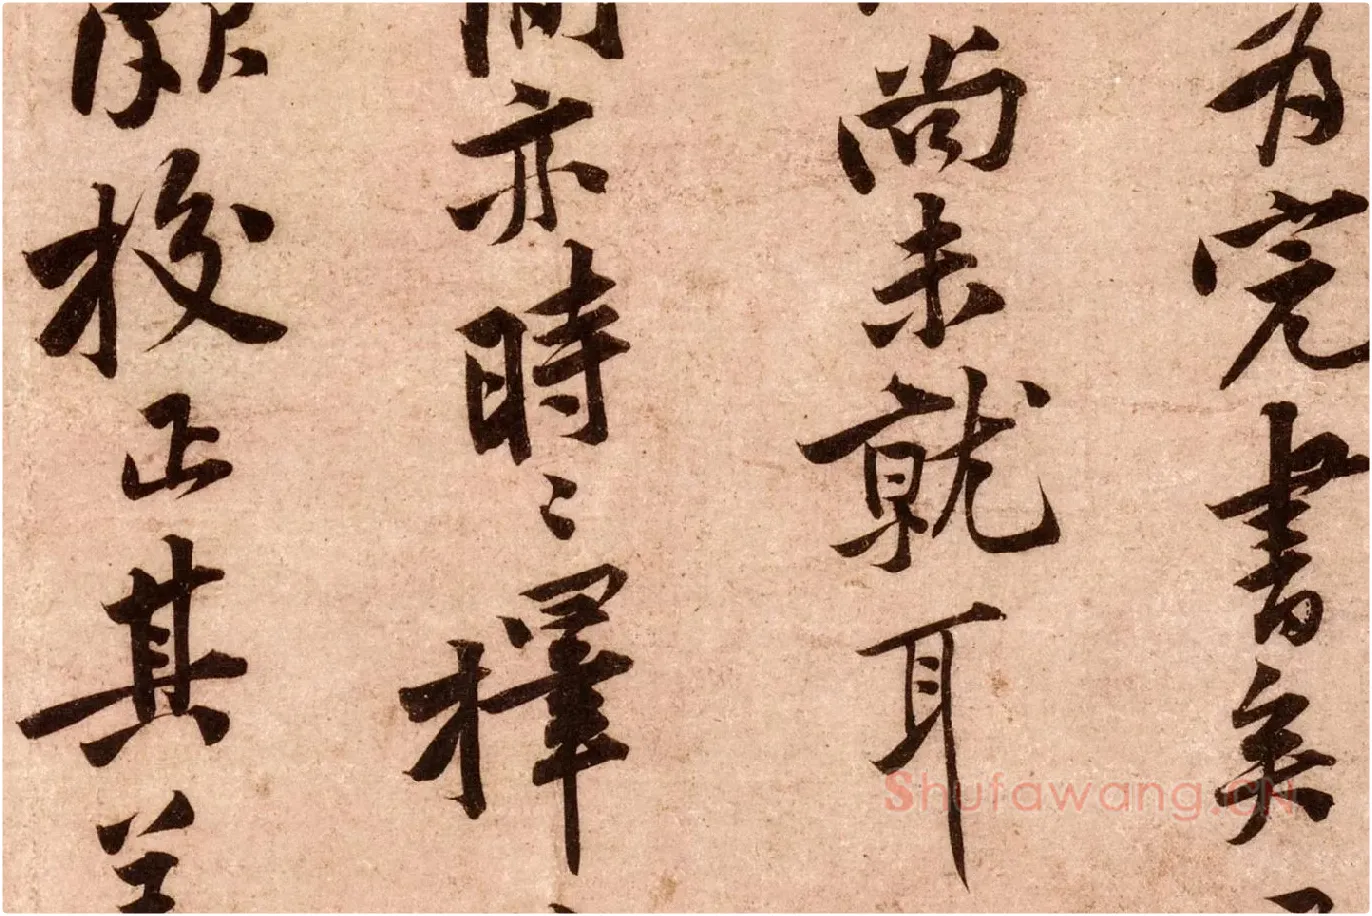 为完書矣
尚未就耳
亦時〻擇
校正其
Shufawang.CN